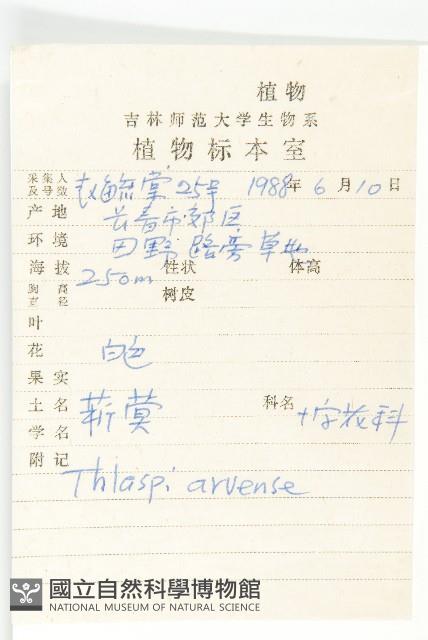 植物
吉林师范大学生物系
植物标本室
采集人及号数 赵毓棠 25号 1988年 6月10日
产地 长春市郊区
环境 田野 路旁草地
海拔 250m 性状 体高
胸高直径 树皮
叶
花 白色
果实
土名 菥蓂 科名 十字花科
学名
附记 Thlaspi arvense
國立自然科學博物館
NATIONAL MUSEUM OF NATURAL SCIENCE